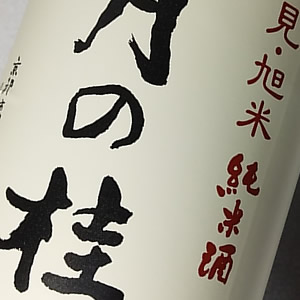 見・旭米
純米酒
月の桂